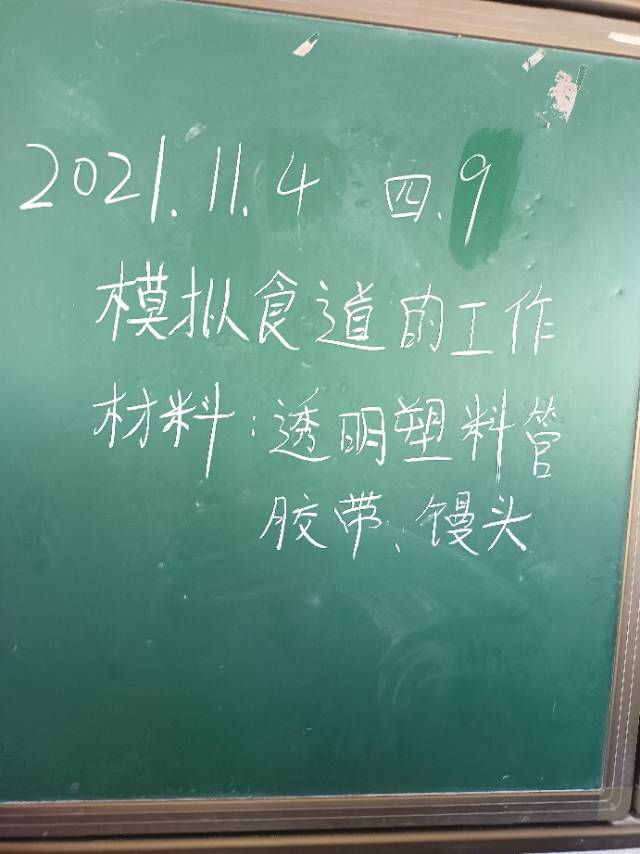 2021.11.4 四.9
模拟食道的工作
材料:透明塑料管
胶带、馒头